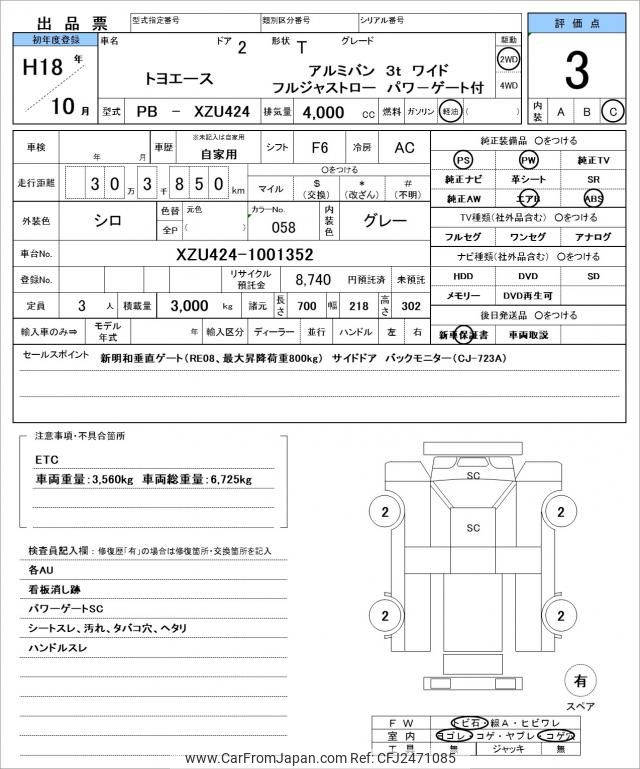 出品票 型式指定番号 類別区分番号 シリアル番号
評価点
初年度登録 車名 ドア 2 形状 T グレード 駆動
H18 年
10 月
トヨエース アルミバン 3t ワイド
フルジャストロー パワーゲート付
2WD
4WD
3
型式 PB － XZU424 排気量 4,000 CC 燃料 ガソリン 軽油 ( )
内装 A B C
車検 年 月 車歴 ※未記入は自家用 自家用 シフト F6 冷房 AC
純正装備品 〇をつける
走行距離 30 万 3 千 850 km
〇をつける
マイル $ (交換) * (改ざん) # (不明)
PS PW 純正TV
純正ナビ 革シート SR
純正AW エアB ABS
外装色 シロ 色替 元色
全P ( )
カラーNo. 058 内装色 グレー
TV種類(社外品含む) 〇をつける
フルセグ ワンセグ アナログ
車台No. XZU424-1001352
ナビ種類(社外品含む) 〇をつける
登録No. リサイクル預託金 8,740 円預託済 未預託
HDD DVD SD
メモリー DVD再生可
定員 3 人 積載量 3,000 kg 諸元 長さ 700 幅 218 高さ 302
後日発送品 〇をつける
輸入車のみ⇒ モデル年式 年 輸入区分 ディーラー 並行 ハンドル 左 右
新車保証書 車両取説
セールスポイント 新明和垂直ゲート(RE08、最大昇降荷重800kg) サイドドア バックモニター(CJ-723A)
注意事項・不具合箇所
ETC
車両重量:3,560kg 車両総重量:6,725kg
検査員記入欄：修復歴「有」の場合は修復箇所・交換箇所を記入
各AU
看板消し跡
パワーゲートSC
シートスレ、汚れ、タバコ穴、ヘタリ
ハンドルスレ
SC
2 SC 2
2 2
有
スペア
FW トビ石・線A・ヒビワレ
室内 ヨゴレ・コゲ・ヤブレ・コゲ穴
工具 無 ジャッキ 無
www.CarFromJapan.com Ref: CFJ2471085